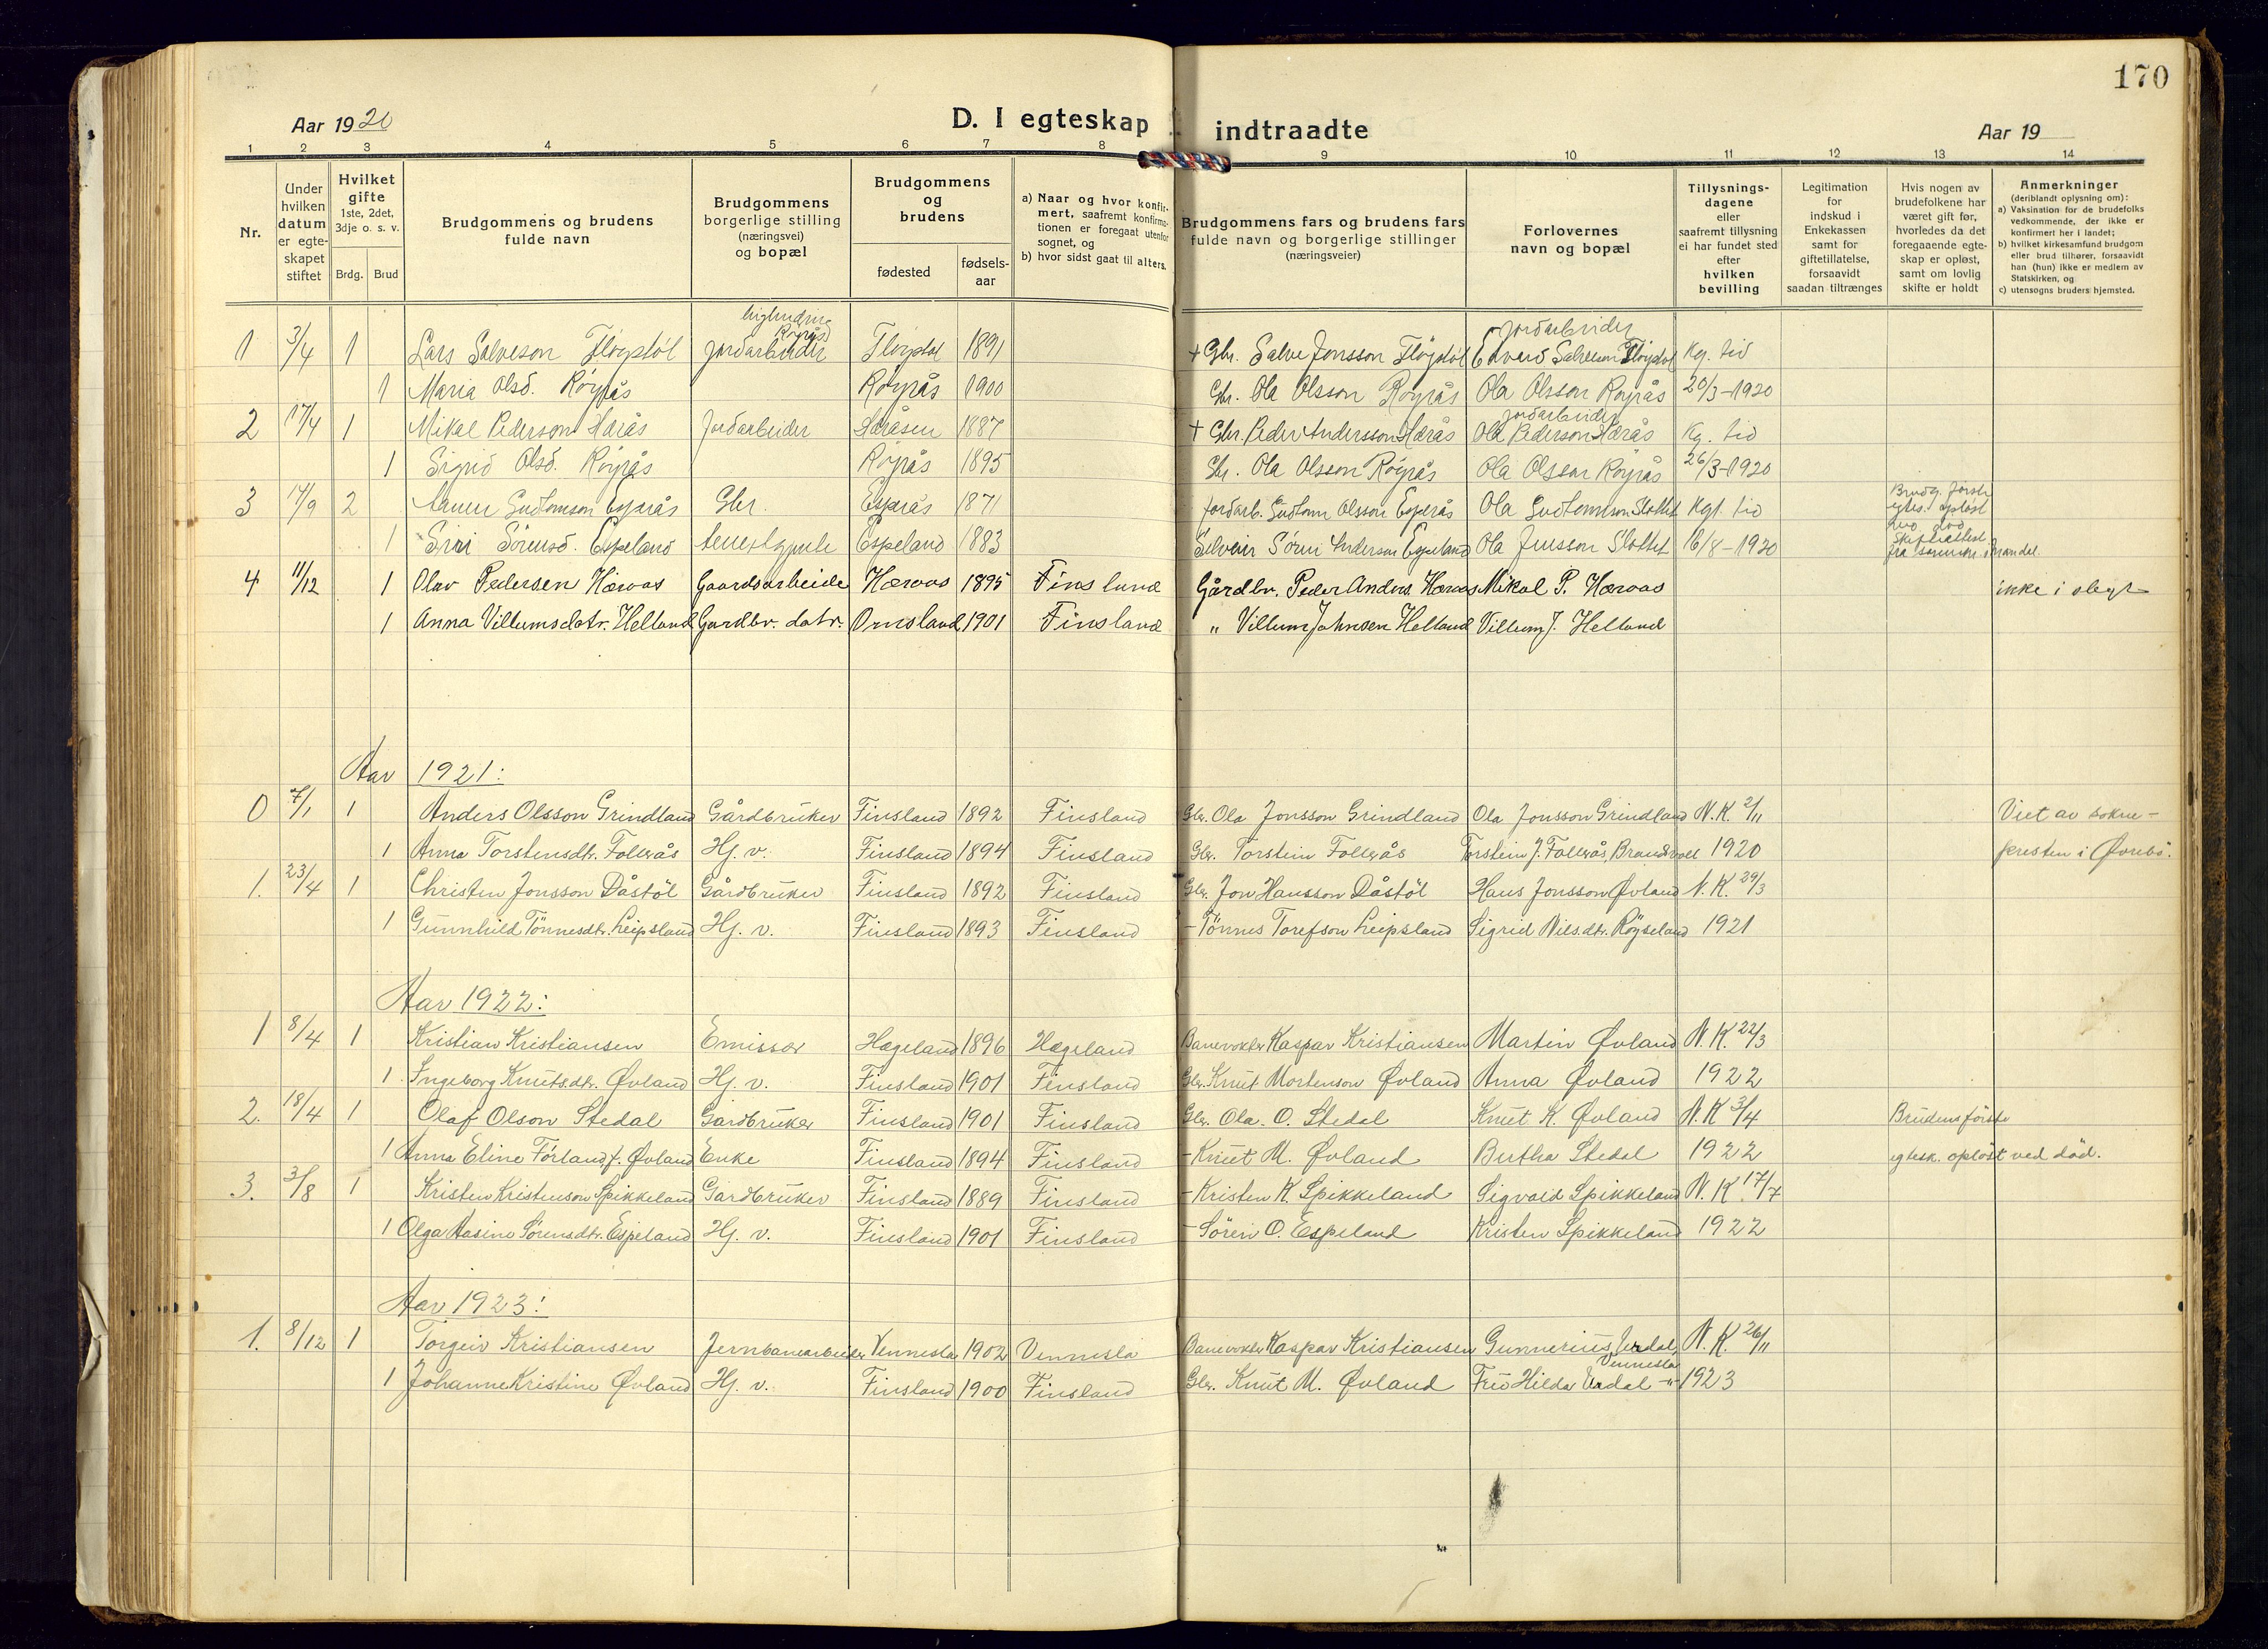 170
Aar 1920
D. I egteskap indtraadte
Aar 19
1 2 3 4 5 6 7 8 9 10 11 12 13 14
Nr.
Under hvilken datum er egte-skapet stiftet
Hvilket gifte 1ste, 2det, 3dje o. s. v.
Brdg. Brud
Brudgommens og brudens fulde navn
Brudgommens borgerlige stilling (næringsvei) og bopæl
Brudgommens og brudens
fødested fødsels-aar
a) Naar og hvor konfir-mert, saafremt konfirma-tionen er foregaat utenfor sognet, og
b) hvor sidst gaat til alters.
Brudgommens fars og brudens fars fulde navn og borgerlige stillinger (næringsveier)
Forlovernes navn og bopæl
Tillysnings-dagene eller saafremt tillysning ei har fundet sted efter hvilken bevilling
Legitimation for indskud i Enkekassen samt for giftetillatelse, forsaavidt saadan tiltrænges
Hvis nogen av brudefolkene har været gift før, hvorledes da det foregaaende egte-skap er opløst, samt om lovlig skifte er holdt
Anmerkninger (deriblandt oplysning om):
a) Vaksination for de brudefolks vedkommende, der ikke er konfirmert her i landet;
b) hvilket kirkesamfund brudgom eller brud tilhører, forsaavidt han (hun) ikke er medlem av Statskirken, og
c) utensogns bruders hjemsted.
Røyrås Jordarbeider
1 3/4 1 Lars Salveson Fløystøl Jordarbeider Fløystøl 1891 + Gbr. Salve Jonsson Fløystøl Edvard Salveson Fløystøl Kg. tid
1 Maria Olsd. Røyrås Røyrås 1900 Gbr. Ola Olsson Røyrås Ola Olsson Røyrås 20/3-1920
Jordarbeider
2 17/4 1 Mikal Pederson Hærås Jordarbeider Hæråsen 1887 + Gbr. Peder Andersson Hærås Ola Pederson Hærås Kg. tid
1 Sigrid Olsd. Røyrås Røyrås 1895 Gbr. Ola Olsson Røyrås Ola Olsson Røyrås 26/3-1920
3 14/9 2 Gudtomson Esperås Gbr. Esperås 1871 Jordarb. Gudtom Olsson Esperås Ola Gudtomson Slottet Kgl. tid Brudg. første egtes. opløst ved død
1 Siri Sörensd. Espeland Espeland 1883 Selveier Sören Anderson Espeland Ola Jensson Slottet 16/8-1920 Skifteattest fra Mandal.
4 11/12 1 Olav Pedersen Hæraas Gaardsarbeide Hæraas 1895 Finsland Gårdbr. Peder Anders. Hæraas Mikal P. Hæraas ikke i slegt
1 Anna Villumsdatr. Helland Gardbr. datr. Ornsland 1901 Finsland " Villum Johnsen Helland Villum J. Helland
Aar 1921:
0 7/1 1 Anders Olsson Grindland Gårdbruker Finsland 1892 Finsland Gbr. Ola Jonsson Grindland Ola Jonsson Grindland N. K. 2/11 Viet av sokne-
1 Anna Torstensdtr. Follerås Hj. v. Finsland 1894 Finsland Gbr. Torstein Follerås Torstein J. Follerås, Brandsvoll 1920 presten i Øvrebö.
1. 23/4 1 Christen Jonsson Dåstöl Gårdbruker Finsland 1892 Finsland Gbr. Jon Hansson Dåstöl Hans Jonsson Øvland N. K. 29/3
1 Gunnhild Tönnesdtr. Leipsland Hj. v. Finsland 1893 Finsland - Tönnes Torefson Leipsland Sigrid Nilsdtr. Röyseland 1921
Aar 1922:
1 8/4 1 Kristian Kristiansen Emissær Hægeland 1896 Hægeland Banevokter Kaspar Kristiansen Martin Øvland N. K. 22/3
1 Ingeborg Knutsdtr. Øvland Hj. v. Finsland 1901 Finsland Gbr. Knut Mortenson Øvland Anna Øvland 1922
2. 18/4 1 Olaf Olson Stedal Gårdbruker Finsland 1901 Finsland Gbr. Ola. O. Stedal Knut K. Øvland N. K 3/4 Brudens förste
1 Anna Eline Förland f. Øvland Enke Finsland 1894 Finsland - Knut M. Øvland Bertha Stedal 1922 egtesk. oplöst ved död.
3. 3/8 1 Kristen Kristenson Spikkeland Gårdbruker Finsland 1889 Finsland - Kristen K. Spikkeland Sigvald Spikkeland N. K. 17/7
1 Olga Aasine Sörensdtr. Espeland Hj. v. Finsland 1901 Finsland - Sören O. Espeland Kristen Spikkeland 1922
Aar 1923:
1. 8/12 1 Torgeir Kristiansen Jernbanearbeider Vennesla 1902 Vennesla Banevokter Kaspar Kristiansen Gunnerius Urdal, Vennesla N. K. 26/11
1 Johanne Kristine Øvland Hj. v. Finsland 1900 Finsland Gbr. Knut M. Øvland Fru Hilda Urdal -"- 1923